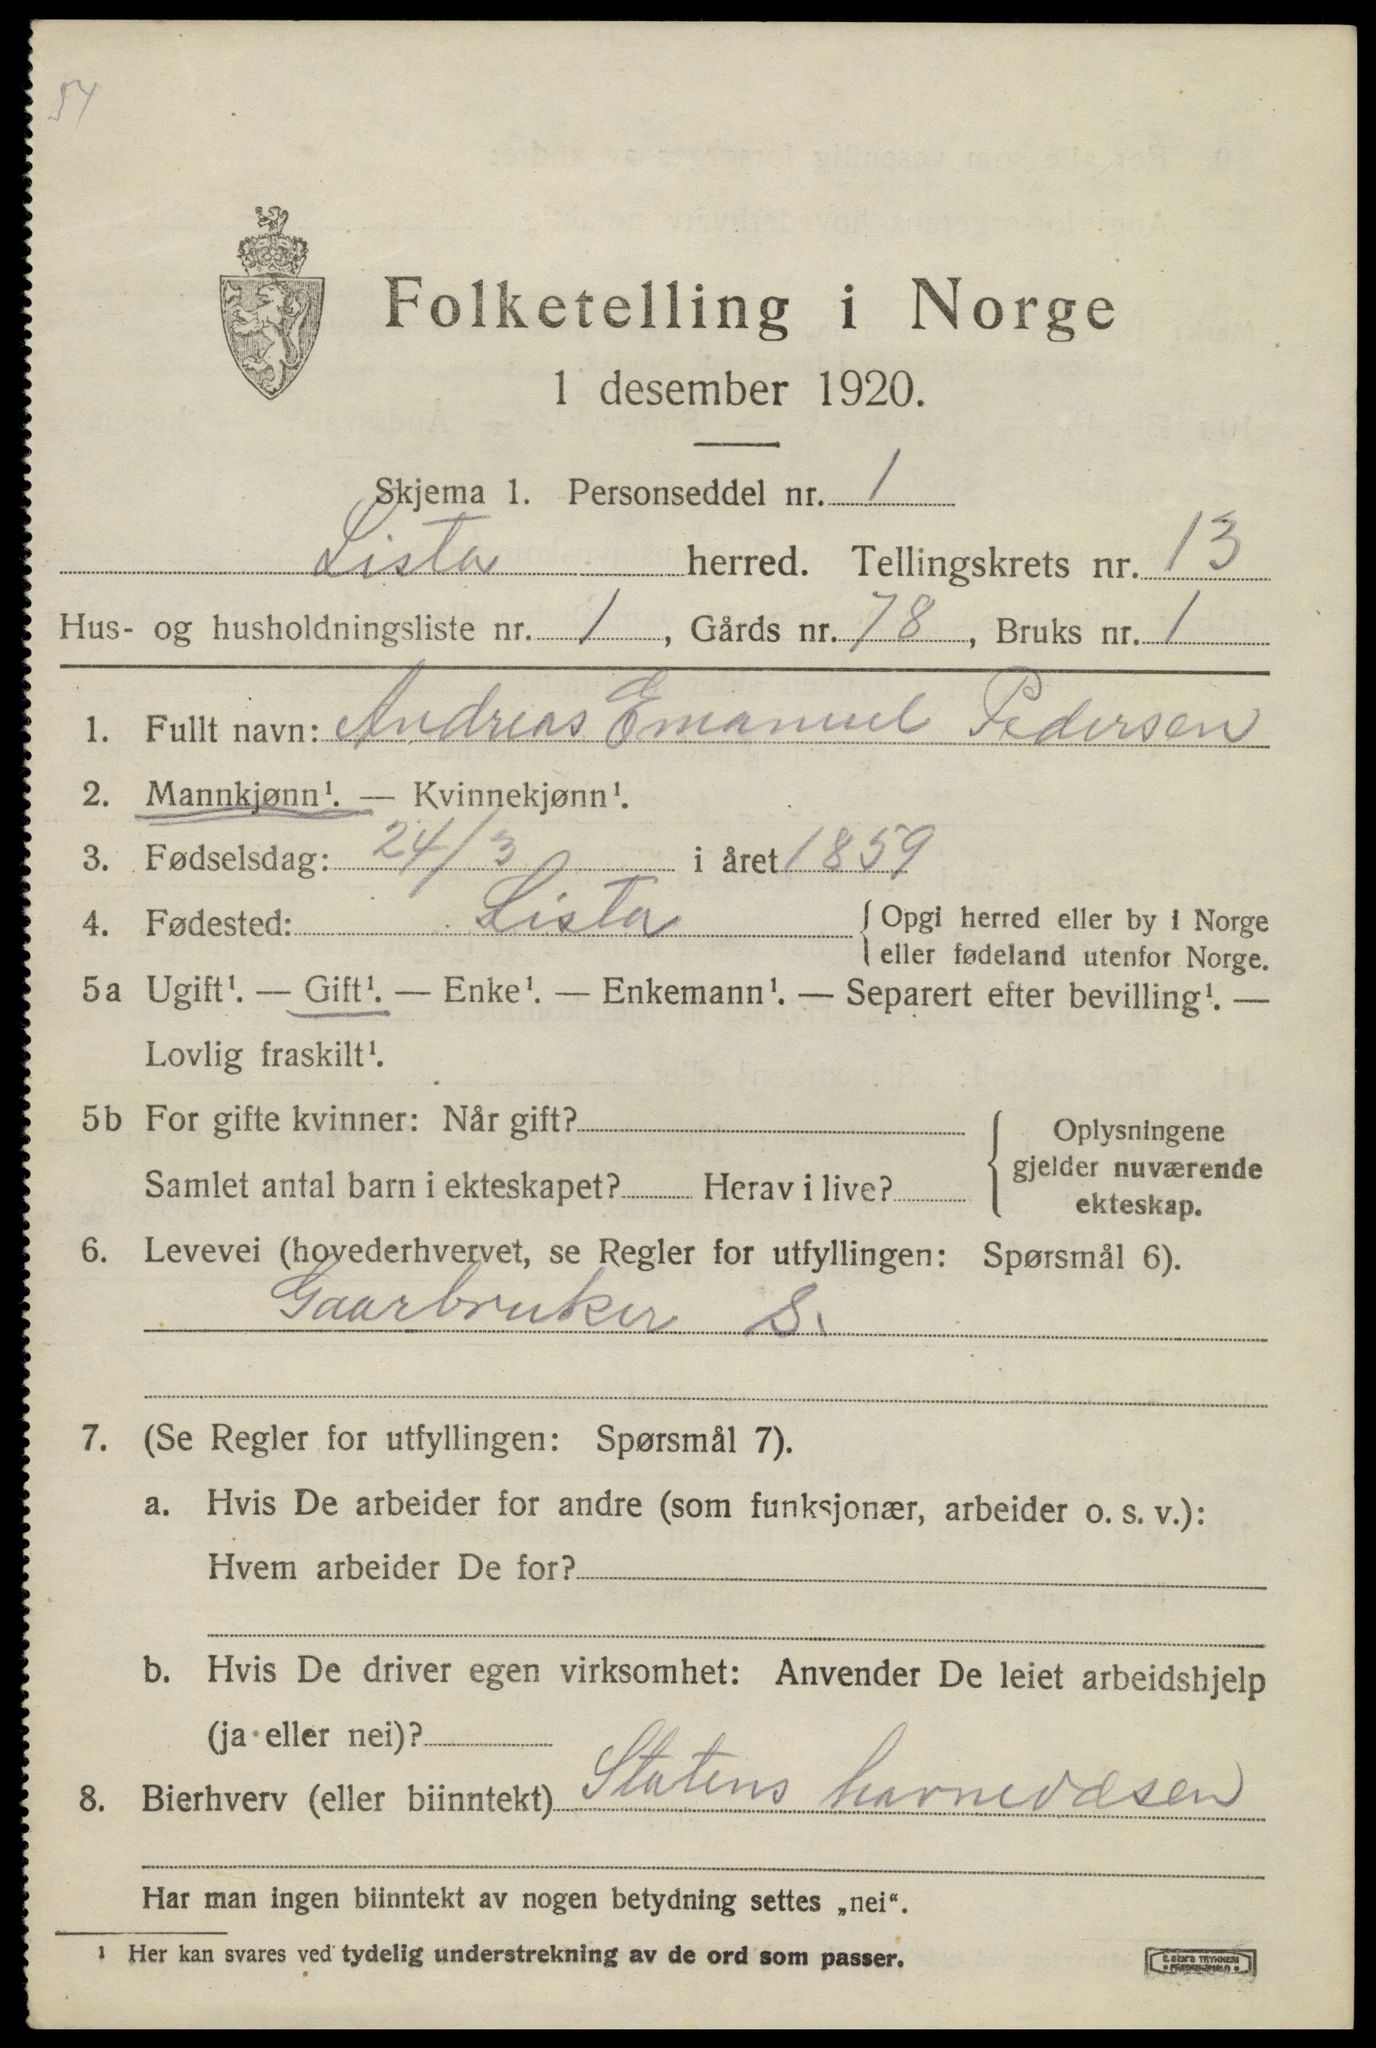 54
Folketelling i Norge
1 desember 1920.
Skjema 1. Personseddel nr. 1
Lista herred. Tellingskrets nr. 13
Hus- og husholdningsliste nr. 1, Gårds nr. 78, Bruks nr. 1
1. Fullt navn: Andreas Emanuel Pedersen
2. Mannkjønn¹. — Kvinnekjønn¹.
3. Fødselsdag: 24/3 i året 1859
4. Fødested: Lista { Opgi herred eller by i Norge
eller fødeland utenfor Norge.
5a Ugift¹. — Gift¹. — Enke¹. — Enkemann¹. — Separert efter bevilling¹. —
Lovlig fraskilt¹.
5b For gifte kvinner: Når gift?
Samlet antal barn i ekteskapet? Herav i live?
{ Oplysningene
gjelder nuværende
ekteskap.
6. Levevei (hovederhvervet, se Regler for utfyllingen: Spørsmål 6).
Gaarbruker S.
7. (Se Regler for utfyllingen: Spørsmål 7).
a. Hvis De arbeider for andre (som funksjonær, arbeider o. s. v.):
Hvem arbeider De for?
b. Hvis De driver egen virksomhet: Anvender De leiet arbeidshjelp
(ja eller nei)?
8. Bierhverv (eller biinntekt) Statens havnevæsen
Har man ingen biinntekt av nogen betydning settes „nei“.
¹ Her kan svares ved tydelig understrekning av de ord som passer.